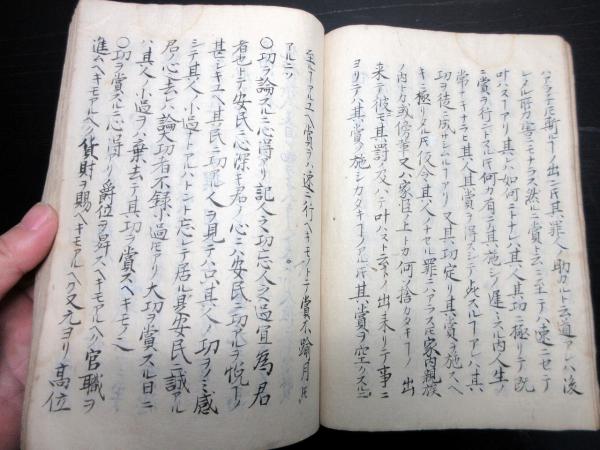 其罪人ノ助カルト云道アレハ後
レタル所カ害ニモナラヌ然ルニ賞ト云ニ至テハ速ニセデ
叶ハスヿアリ其レハ如何ニトナレハ其人其功ノ極リテ既
ニ賞ヲ行ニトスル𪜈何カ有テ其施シノ遅々スル内人生ノ
常ナキナラヒ其人其賞ヲ得スシテ スルヿアレハ其
功ヲ徒ニ成サシムルヿアリ又其功定リ其賞モ施スヘ
キニ極リタル𪜈仮令其人ノナセル罪ニハアラス𪜈家内親族
ノ内トカ或ハ傍輩又ハ家臣ノ上トカ何ソ捨カタキヿノ出
来テ彼モ其罰ノ及ハテ叶ハヌト云ヿノ出来リテ事ニ
ヨリテハ其賞ノ施シカタキヿノアル𪜈其賞ヲ空クスルニ
至ルヿアルユヘ賞ヲハ速ニ行ヘキモノトテ賞不踰月𪜈
アルニソ
○功ヲ論スルニ心得アリ記人之功忘人之過宜為君
者也トテ安民ニ心深キ君ノ心ニハ安民ニ功アルヲ悦フヿノ
甚シキユヘ其民ニ功アル人ヲ見テハ只其人ノ功ヲノミ感
シテ其人ノ小過 テ居ル是安民ニ誠アル
君ノ心也 論功者不録小過𪜈アリ大功ヲ賞スル日ニ
ハ其人ノ小過ヲハ棄去テ其功ヲ賞スヘキモノ也
○功ヲ賞スルニ心得アリ爵位ヲ昇スヘキモアルヘク官職ヲ
進ムヘキモアルヘク貨財ヲ賜ヘキモアルヘク又元ヨリ高位